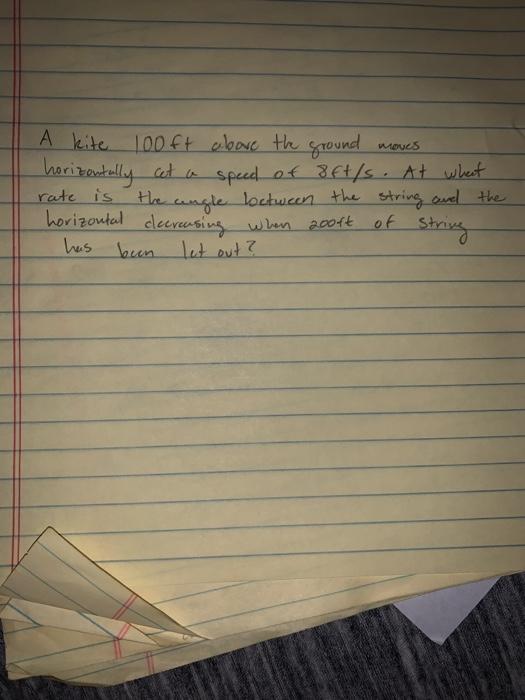 A kite 100ft above the ground moves
horizontally at a speed of 8ft/s. At what
rate is the angle between the string and the
horizontal decreasing when 200ft of string
has been let out?